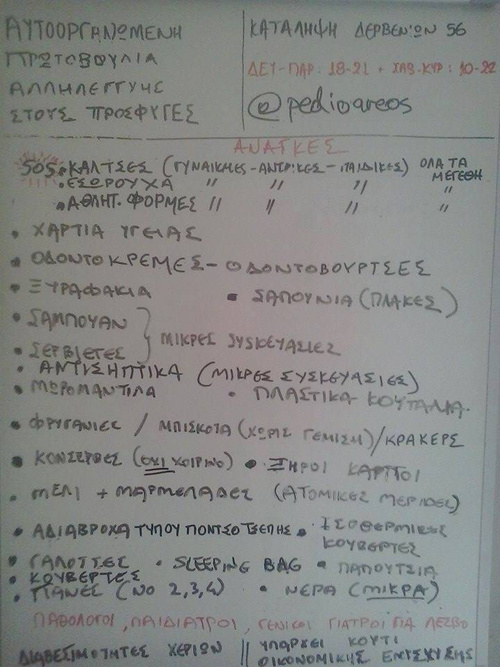 ΑΥΤΟΟΡΓΑΝΩΜΕΝΗ
ΠΡΩΤΟΒΟΥΛΙΑ
ΑΛΛΗΛΕΓΓΥΗΣ
ΣΤΟΥΣ ΠΡΟΣΦΥΓΕΣ
ΚΑΤΑΛΗΨΗ ΔΕΡΒΕΝΙΩΝ 56
ΔΕΥ-ΠΑΡ: 18-21 • ΣΑΒ-ΚΥΡ: 10-22
@pedioareos
ΑΝΑΓΚΕΣ
SOS • ΚΑΛΤΣΕΣ (ΓΥΝΑΙΚΕΙΕΣ-ΑΝΤΡΙΚΕΣ-ΠΑΙΔΙΚΕΣ) ΟΛΑ ΤΑ ΜΕΓΕΘΗ
• ΕΣΩΡΟΥΧΑ // // // //
• ΑΘΛΗΤ. ΦΟΡΜΕΣ // // // //
• ΧΑΡΤΙΑ ΥΓΕΙΑΣ
• ΟΔΟΝΤΟΚΡΕΜΕΣ - ΟΔΟΝΤΟΒΟΥΡΤΣΕΣ
• ΞΥΡΑΦΑΚΙΑ • ΣΑΠΟΥΝΙΑ (ΠΛΑΚΕΣ)
• ΣΑΜΠΟΥΑΝ
• ΣΕΡΒΙΕΤΕΣ } ΜΙΚΡΕΣ ΣΥΣΚΕΥΑΣΙΕΣ
• ΑΝΤΙΣΗΠΤΙΚΑ (ΜΙΚΡΕΣ ΣΥΣΚΕΥΑΣΙΕΣ)
• ΜΩΡΟΜΑΝΤΙΛΑ • ΠΛΑΣΤΙΚΑ ΚΟΥΤΑΛΙΑ
• ΦΡΥΓΑΝΙΕΣ / ΜΠΙΣΚΟΤΑ (ΧΩΡΙΣ ΓΕΜΙΣΗ) / ΚΡΑΚΕΡΣ
• ΚΟΝΣΕΡΒΕΣ (ΟΧΙ ΧΟΙΡΙΝΟ) • ΞΗΡΟΙ ΚΑΡΠΟΙ
• ΜΕΛΙ + ΜΑΡΜΕΛΑΔΕΣ (ΑΤΟΜΙΚΕΣ ΜΕΡΙΔΕΣ)
• ΑΔΙΑΒΡΟΧΑ ΤΥΠΟΥ ΠΟΝΤΣΟ ΤΣΕΠΗΣ • ΙΣΟΘΕΡΜΙΚΕΣ ΚΟΥΒΕΡΤΕΣ
• ΓΑΛΟΤΣΕΣ • SLEEPING BAG • ΠΑΠΟΥΤΣΙΑ
• ΚΟΥΒΕΡΤΕΣ
• ΠΑΝΕΣ (ΝΟ 2,3,4) • ΝΕΡΑ (ΜΙΚΡΑ)
ΠΑΘΟΛΟΓΟΙ, ΠΑΙΔΙΑΤΡΟΙ, ΓΕΝΙΚΟΙ ΓΙΑΤΡΟΙ ΓΙΑ ΛΕΣΒΟ
ΔΙΑΒΕΣΙΜΟΤΗΤΕΣ ΧΕΡΙΩΝ || ΥΠΑΡΧΕΙ ΚΟΥΤΙ
ΟΙΚΟΝΟΜΙΚΗΣ ΕΝΙΣΧΥΣΗΣ